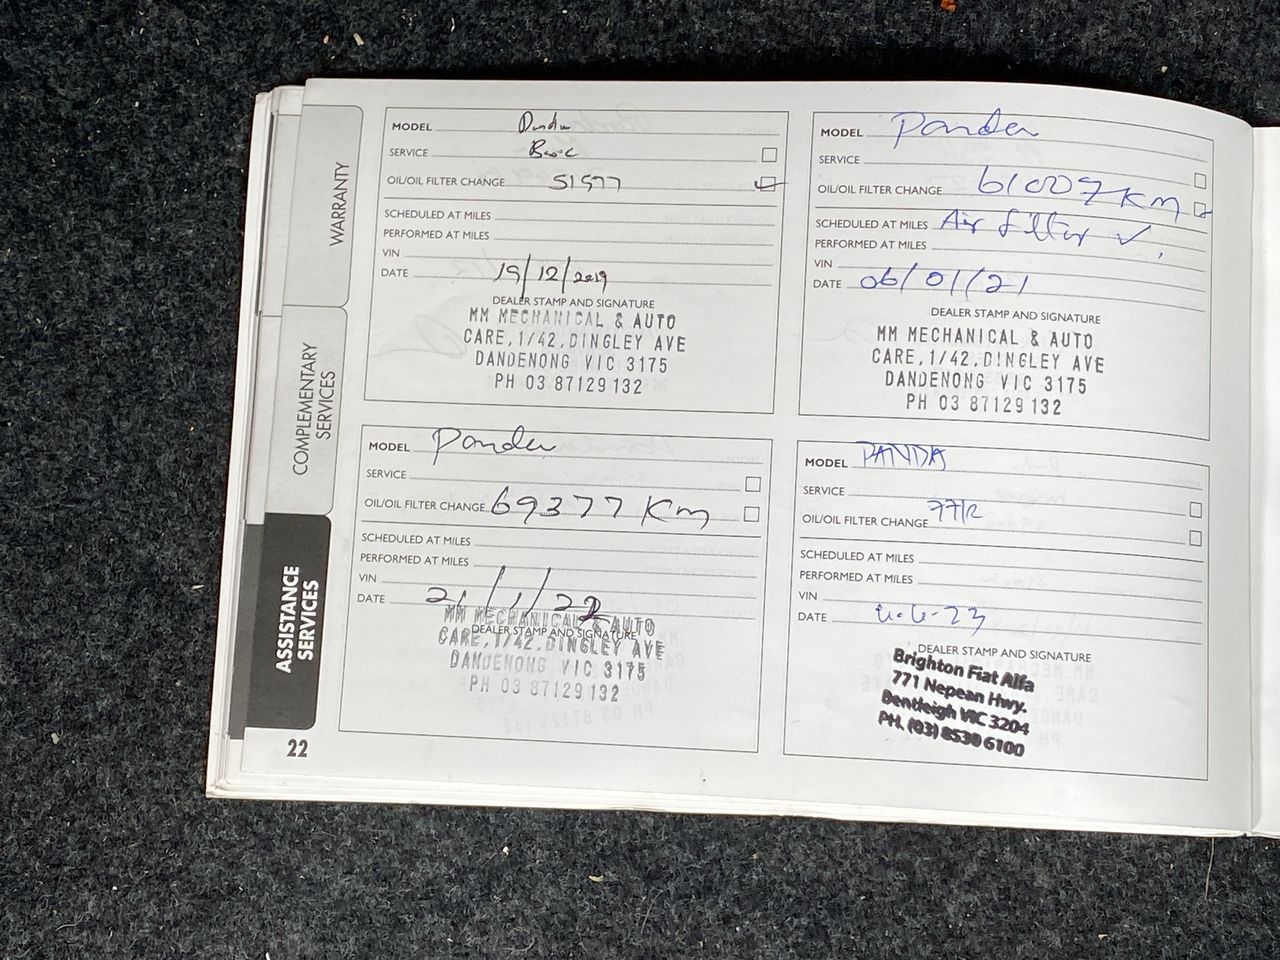 WARRANTY
COMPLEMENTARY
SERVICES
ASSISTANCE
SERVICES
22
MODEL Panda
SERVICE Basic
OIL/OIL FILTER CHANGE 51577
SCHEDULED AT MILES
PERFORMED AT MILES
VIN
DATE 19/12/2019
DEALER STAMP AND SIGNATURE
MM MECHANICAL & AUTO
CARE,1/42,DINGLEY AVE
DANDENONG VIC 3175
PH 03 87129132
MODEL Panda
SERVICE
OIL/OIL FILTER CHANGE 61007 KM
SCHEDULED AT MILES Air filter ✓
PERFORMED AT MILES
VIN
DATE 06/01/21
DEALER STAMP AND SIGNATURE
MM MECHANICAL & AUTO
CARE,1/42,DINGLEY AVE
DANDENONG VIC 3175
PH 03 87129132
MODEL Panda
SERVICE
OIL/OIL FILTER CHANGE 69377 Km
SCHEDULED AT MILES
PERFORMED AT MILES
VIN
DATE 21/1/22
DEALER STAMP AND SIGNATURE
MM MECHANICAL & AUTO
CARE,1/42,DINGLEY AVE
DANDENONG VIC 3175
PH 03 87129132
MODEL PANDA
SERVICE
OIL/OIL FILTER CHANGE
SCHEDULED AT MILES
PERFORMED AT MILES
VIN
DATE
DEALER STAMP AND SIGNATURE
Brighton Fiat Alfa
771 Nepean Hwy.
Bentleigh VIC 3204
PH. (03) 8530 6100